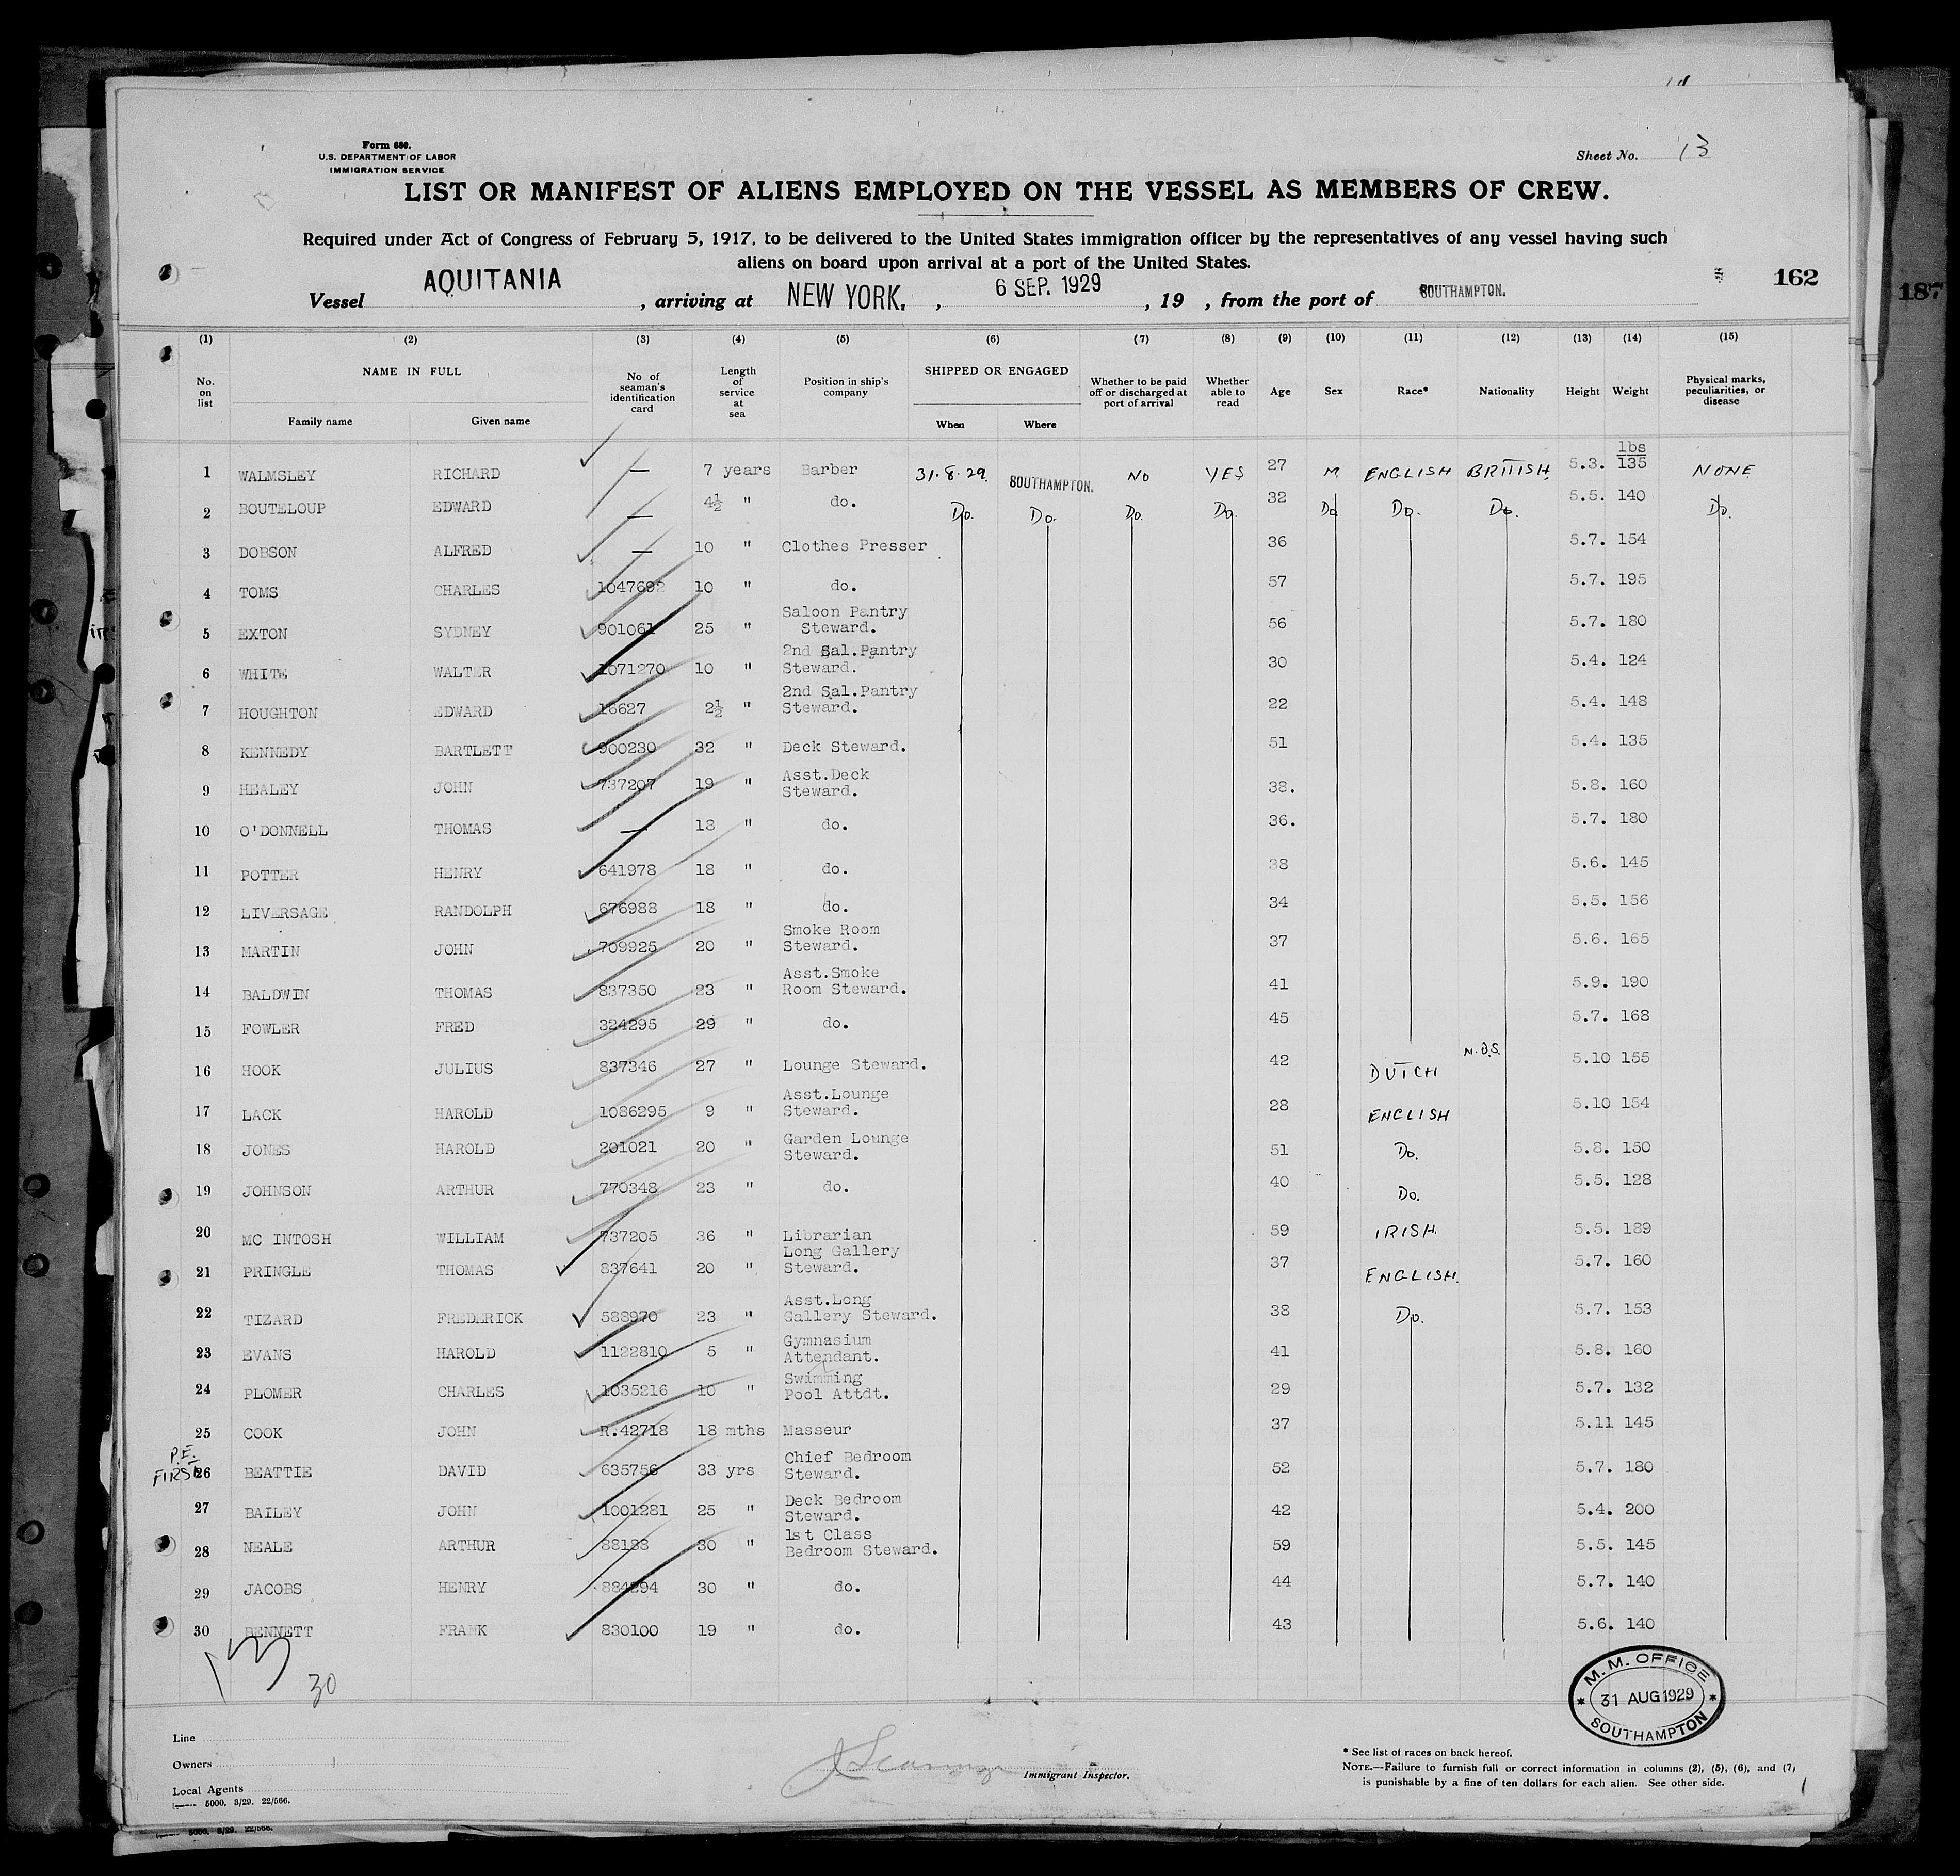 Form 680.
U.S. DEPARTMENT OF LABOR
IMMIGRATION SERVICE
Sheet No. 13
LIST OR MANIFEST OF ALIENS EMPLOYED ON THE VESSEL AS MEMBERS OF CREW.
Required under Act of Congress of February 5, 1917, to be delivered to the United States immigration officer by the representatives of any vessel having such
aliens on board upon arrival at a port of the United States.
Vessel AQUITANIA, arriving at NEW YORK., 6 SEP. 1929, 19 , from the port of SOUTHAMPTON. 162
187
(1) (2) (3) (4) (5) (6) (7) (8) (9) (10) (11) (12) (13) (14) (15)
No. on list NAME IN FULL Family name Given name No of seaman's identification card Length of service at sea Position in ship's company SHIPPED OR ENGAGED When Where Whether to be paid off or discharged at port of arrival Whether able to read Age Sex Race* Nationality Height Weight Physical marks, peculiarities, or disease
lbs
1 WALMSLEY RICHARD — 7 years Barber 31.8.29. SOUTHAMPTON. NO YES 27 M ENGLISH BRITISH. 5.3. 135 NONE
2 BOUTELOUP EDWARD — 4½ " do. Do. Do. Do. Do. 32 Do Do. Do. 5.5. 140 Do.
3 DOBSON ALFRED — 10 " Clothes Presser 36 5.7. 154
4 TOMS CHARLES 1047692 10 " do. 57 5.7. 195
5 EXTON SYDNEY 901061 25 " Saloon Pantry Steward. 56 5.7. 180
6 WHITE WALTER 1071270 10 " 2nd Sal.Pantry Steward. 30 5.4. 124
7 HOUGHTON EDWARD 16627 2½ " 2nd Sal.Pantry Steward. 22 5.4. 148
8 KENNEDY BARTLETT 900230 32 " Deck Steward. 51 5.4. 135
9 HEALEY JOHN 737207 19 " Asst.Deck Steward. 38. 5.8. 160
10 O'DONNELL THOMAS — 18 " do. 36. 5.7. 180
11 POTTER HENRY 641978 18 " do. 38 5.6. 145
12 LIVERSAGE RANDOLPH 676988 18 " do. 34 5.5. 156
13 MARTIN JOHN 709925 20 " Smoke Room Steward. 37 5.6. 165
14 BALDWIN THOMAS 837350 23 " Asst.Smoke Room Steward. 41 5.9. 190
15 FOWLER FRED 324295 29 " do. 45 5.7. 168
16 HOOK JULIUS 837346 27 " Lounge Steward. 42 DUTCH 5.10 155
17 LACK HAROLD 1086295 9 " Asst.Lounge Steward. 28 ENGLISH 5.10 154
18 JONES HAROLD 201021 20 " Garden Lounge Steward. 51 Do. 5.8. 150
19 JOHNSON ARTHUR 770348 23 " do. 40 Do. 5.5. 128
20 MC INTOSH WILLIAM 737205 36 " Librarian 59 IRISH. 5.5. 189
21 PRINGLE THOMAS 837641 20 " Long Gallery Steward. 37 ENGLISH. 5.7. 160
22 TIZARD FREDERICK 588970 23 " Asst.Long Gallery Steward. 38 Do. 5.7. 153
23 EVANS HAROLD 1122810 5 " Gymnasium Attendant. 41 5.8. 160
24 PLOMER CHARLES 1035216 10 " Swimming Pool Attdt. 29 5.7. 132
25 COOK JOHN R.42718 18 mths Masseur 37 5.11 145
P.E. FIRST
26 BEATTIE DAVID 635756 33 yrs Chief Bedroom Steward. 52 5.7. 180
27 BAILEY JOHN 1001281 25 " Deck Bedroom Steward. 42 5.4. 200
28 NEALE ARTHUR 88188 30 " 1st Class Bedroom Steward. 59 5.5. 145
29 JACOBS HENRY 30 " do. 44 5.7. 140
30 BENNETT FRANK 830100 19 " do. 43 5.6. 140
30
M. M. OFFICE
31 AUG 1929
SOUTHAMPTON
Line
Owners
Local Agents
5000. 3/29. 22/566.
Immigrant Inspector.
* See list of races on back hereof.
NOTE.—Failure to furnish full or correct information in columns (2), (5), (6), and (7)
is punishable by a fine of ten dollars for each alien. See other side.
5000. 3/29. 22/566.